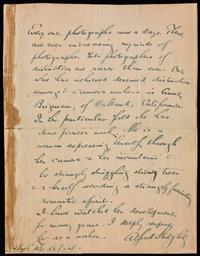 Every one photographs now a days. There
are ever increasing myriads of
photographs. Yet photographers of
distinction are rarer than ever. One
who has achieved deserved distinction
amongst camera workers is Annie
Brigman, of Oakland, California.
In her particular field she has
done pioneer work. She is a
woman expressing herself through
her camera &
strangely struggling
herself revealing a strangely
romantic spirit.
I have watched her development
for many years. I deeply respect
her as a worker.
Alfred Stieglitz